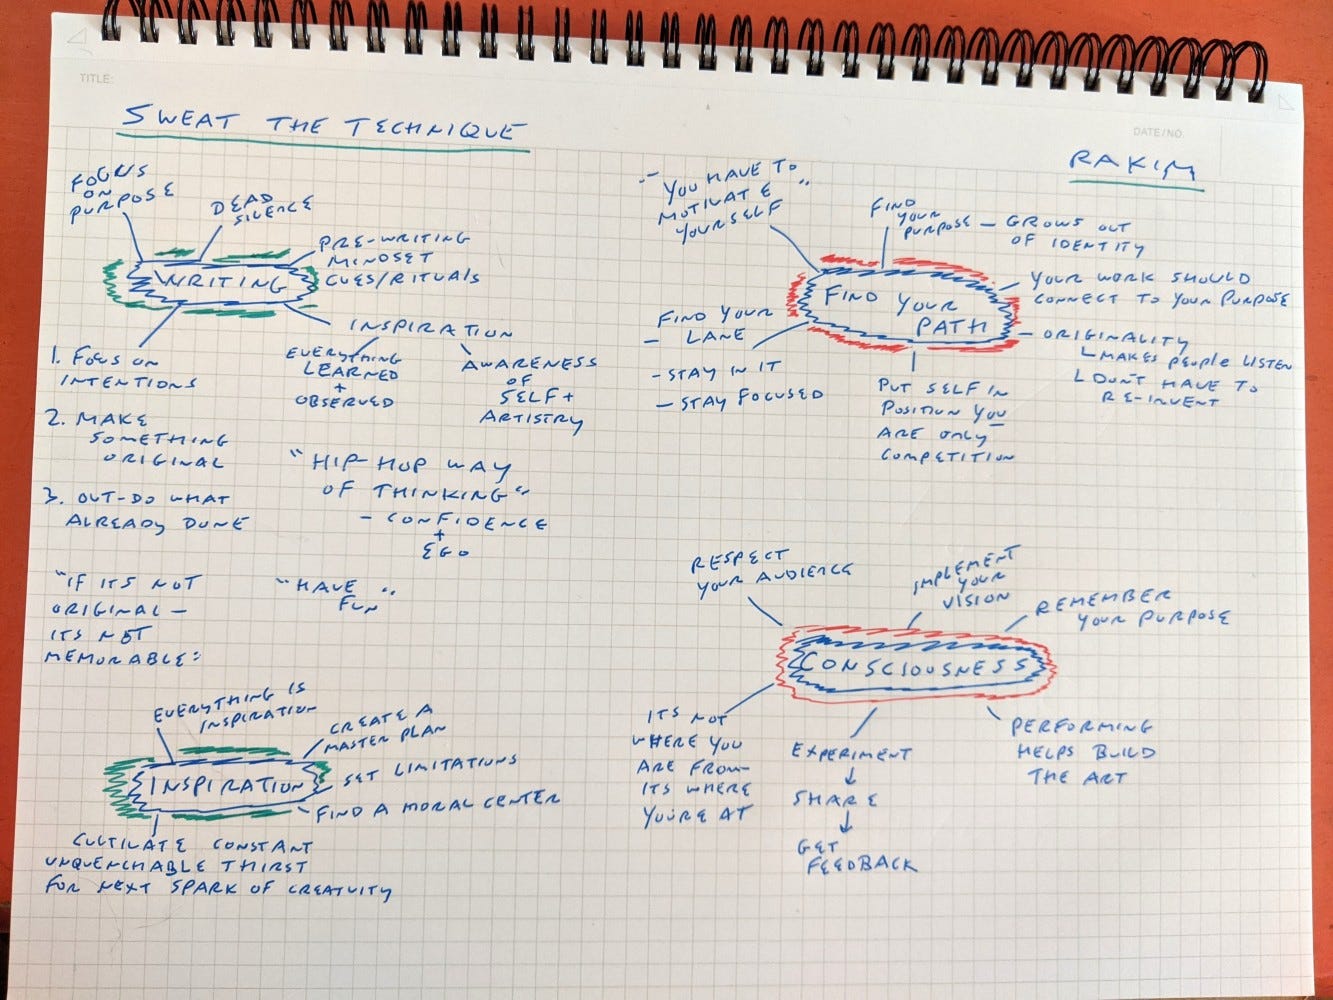 TITLE:
SWEAT THE TECHNIQUE
DATE/NO.
RAKIM
FOCUS
ON
PURPOSE
DEAD
SILENCE
PRE-WRITING
MINDSET
CUES/RITUALS
WRITING
INSPIRATION
EVERYTHING
LEARNED
+
OBSERVED
AWARENESS
OF
SELF +
ARTISTRY
1. FOCUS ON
INTENTIONS
2. MAKE
SOMETHING
ORIGINAL
3. OUT-DO WHAT
ALREADY DONE
"HIP-HOP WAY
OF THINKING"
- CONFIDENCE
+
EGO
"IF ITS NOT
ORIGINAL -
ITS NOT
MEMORABLE"
"HAVE
FUN"
EVERYTHING IS
INSPIRATION
CREATE A
MASTER PLAN
INSPIRATION
SET LIMITATIONS
FIND A MORAL CENTER
CULTIVATE CONSTANT
UNQUENCHABLE THIRST
FOR NEXT SPARK OF CREATIVITY
"YOU HAVE TO
MOTIVATE
YOURSELF"
FIND
YOUR
PURPOSE - GROWS OUT
OF IDENTITY
YOUR WORK SHOULD
CONNECT TO YOUR PURPOSE
FIND YOUR
PATH
FIND YOUR
- LANE
- STAY IN IT
- STAY FOCUSED
- ORIGINALITY
MAKES PEOPLE LISTEN
DON'T HAVE TO
RE-INVENT
PUT SELF IN
POSITION YOU
ARE ONLY
COMPETITION
RESPECT
YOUR AUDIENCE
IMPLEMENT
YOUR
VISION
REMEMBER
YOUR PURPOSE
CONSCIOUSNESS
ITS NOT
WHERE YOU
ARE FROM-
ITS WHERE
YOU'RE AT
EXPERIMENT
↓
SHARE
↓
GET
FEEDBACK
PERFORMING
HELPS BUILD
THE ART